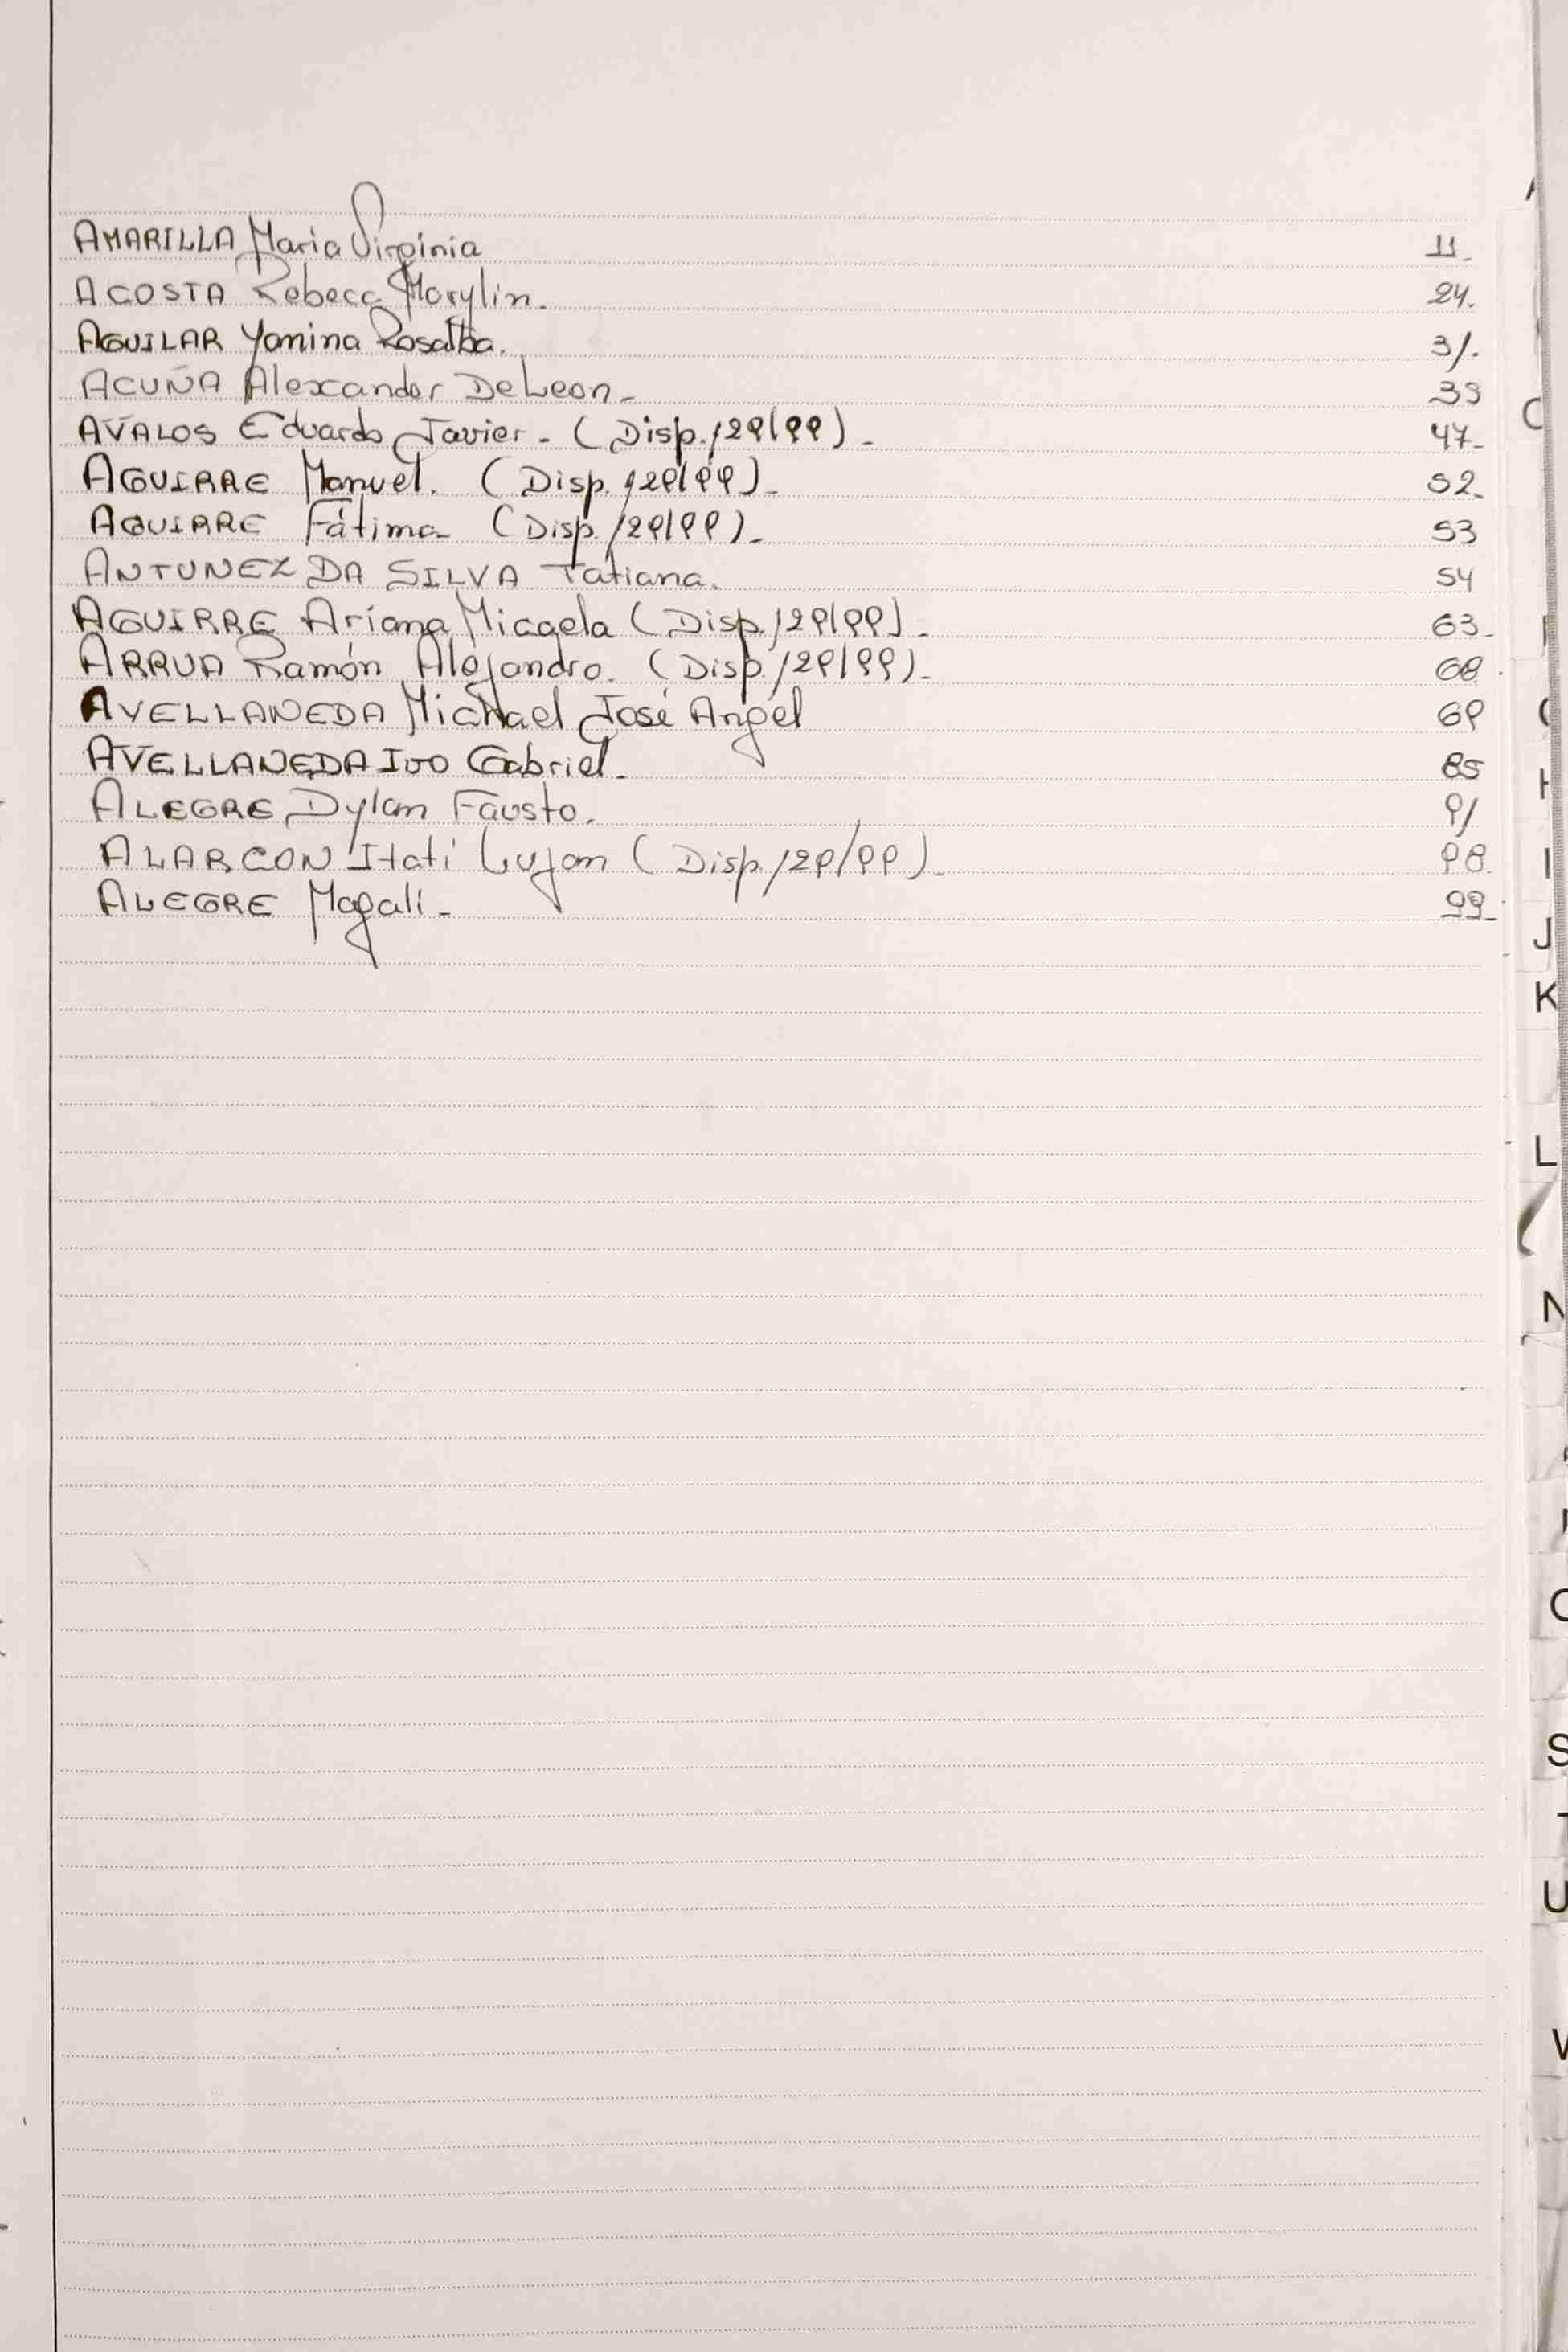 AMARILLA Maria Virginia 11.
ACOSTA Rebeca Marylin. 24.
AGUILAR Yanina Rosalba. 31.
ACUÑA Alexcander De Leon. 39
AVALOS Eduardo Javier. (Disp. 129/99). 47.
AGUIRRE Manuel. (Disp. 129/99). 52.
AGUIRRE Fátima (Disp. 129/99). 53
ANTUNEZ DA SILVA Tatiana. 54
AGUIRRE Ariana Micaela (Disp. 129/99). 63.
ARRUA Ramón Alejandro. (Disp. 129/99). 68.
AVELLANEDA Michael José Angel 69
AVELLANEDA Ivo Gabriel. 85
ALEGRE Dylan Fausto. 91
ALARCON Itatí Lujan (Disp. 129/99). 98.
ALEGRE Magalí. 99.
C
H
I
J
K
L
N
S
U